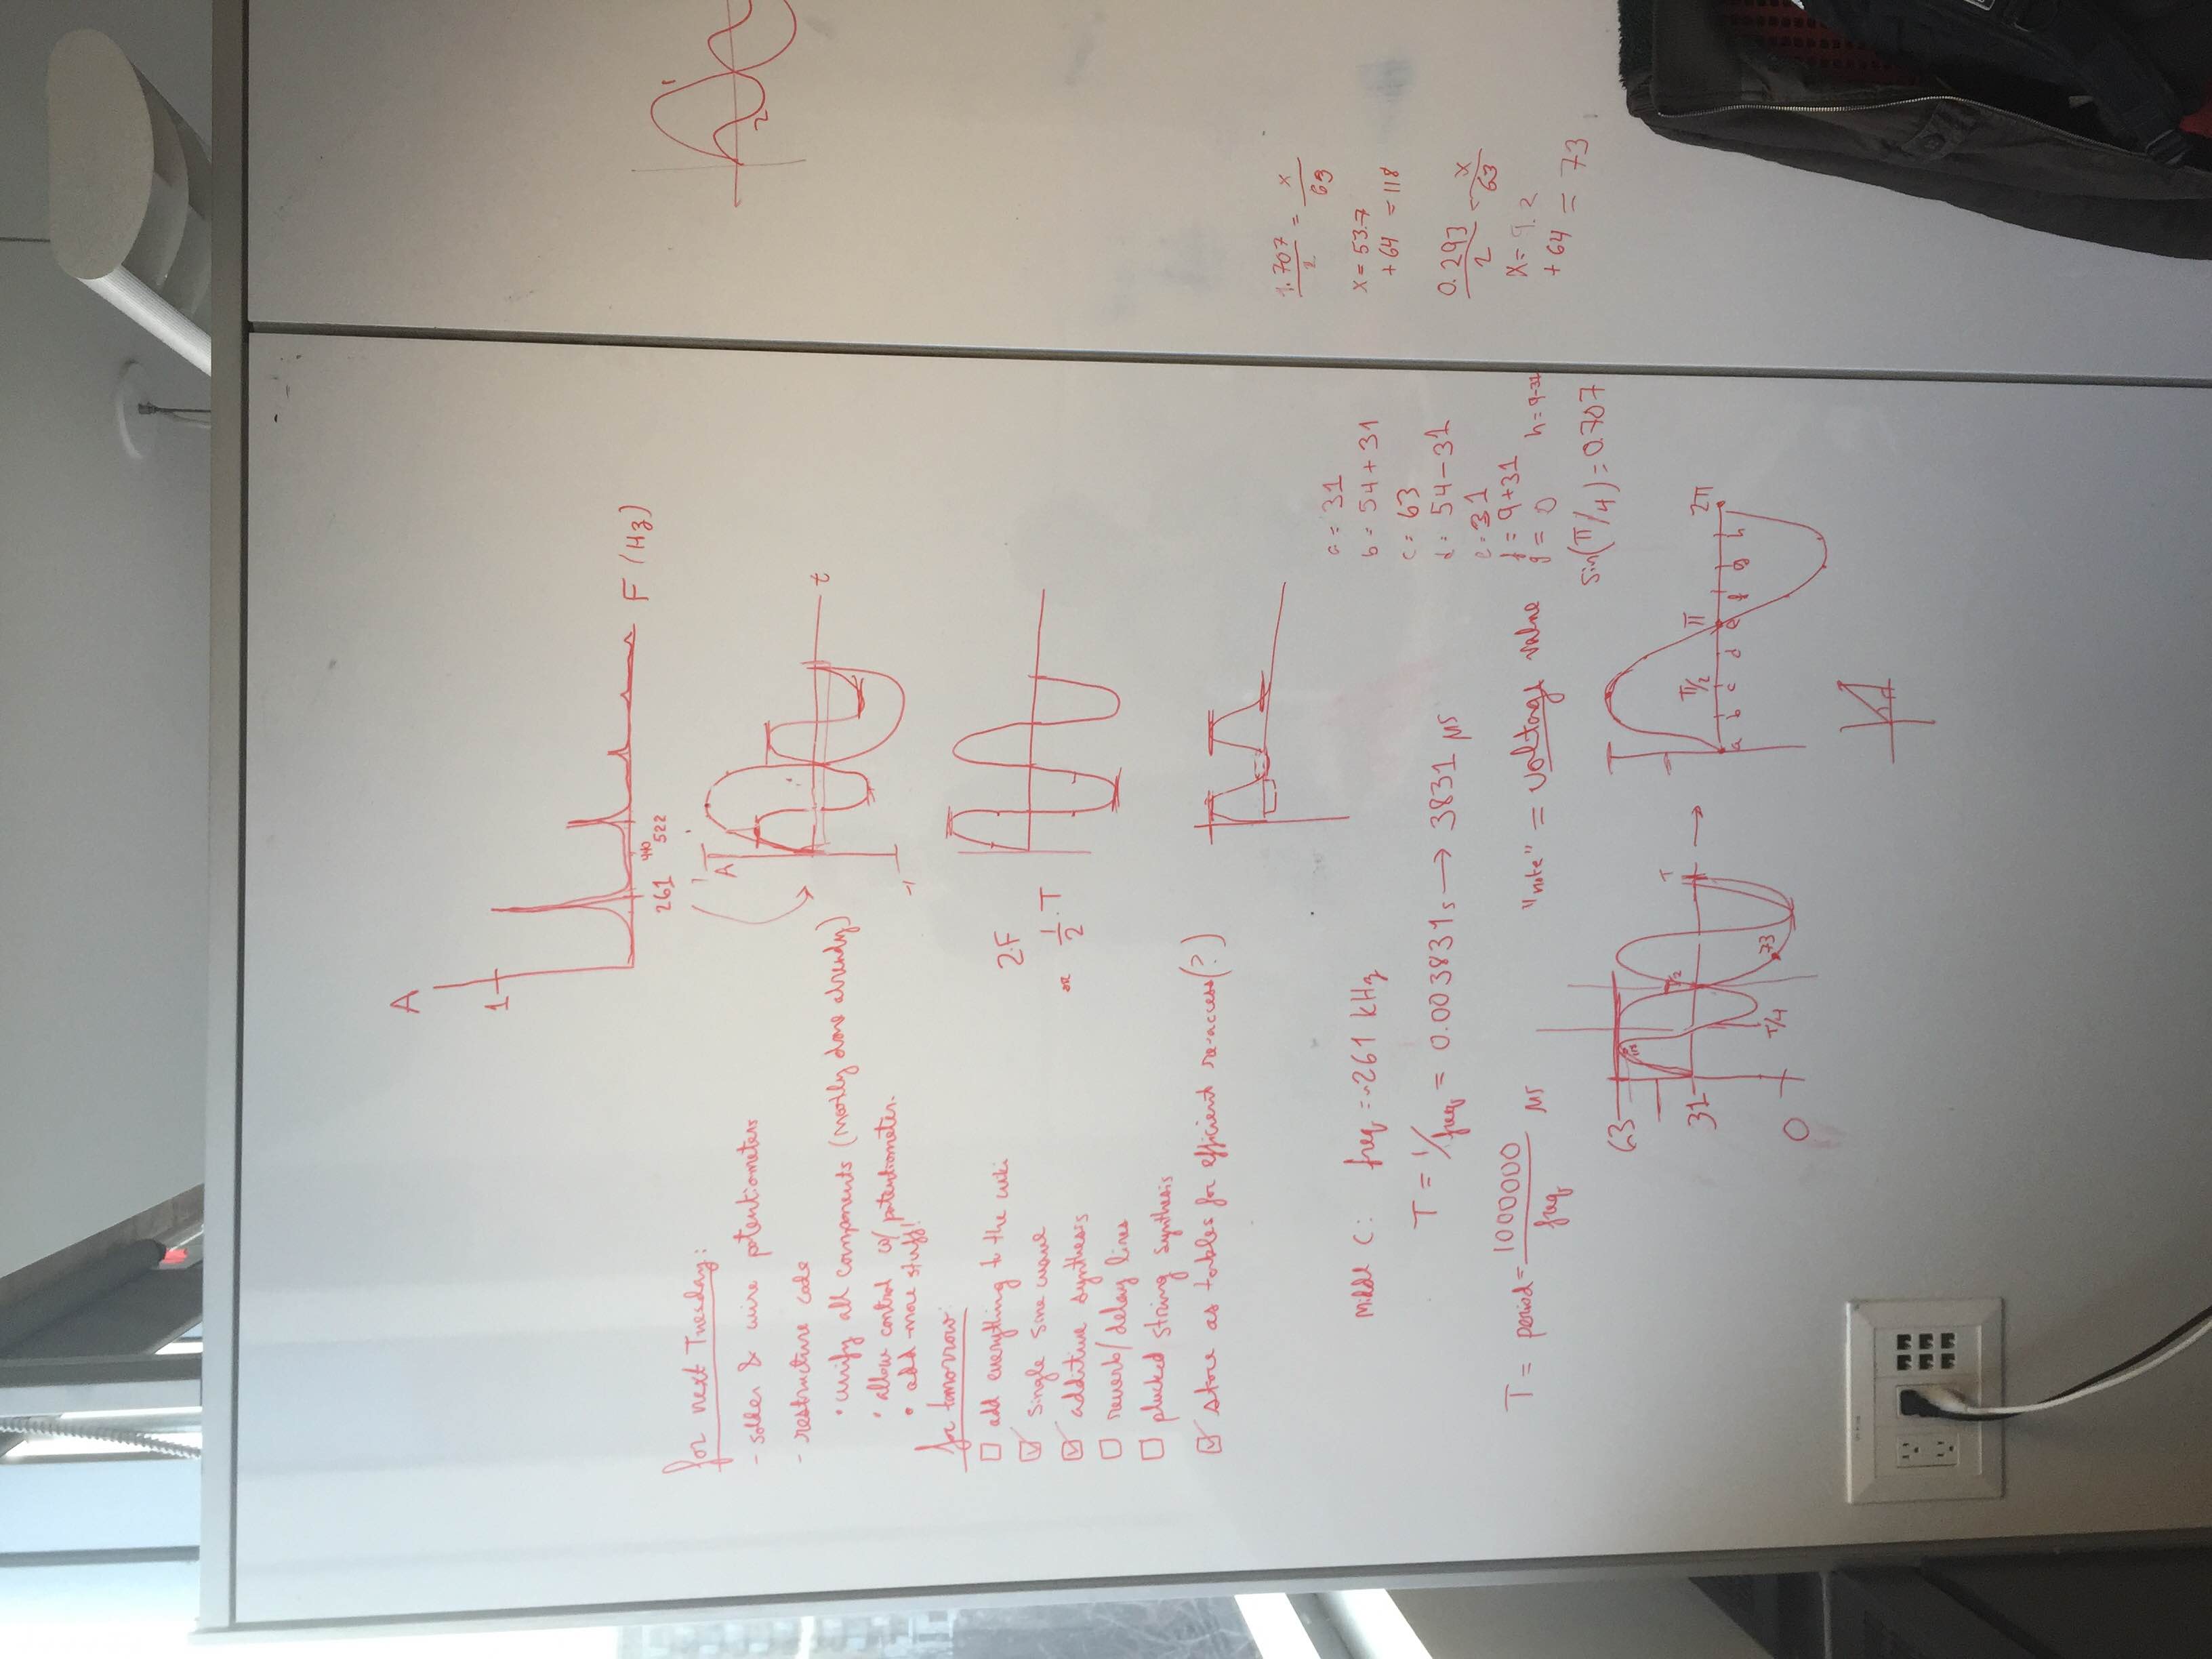 A
1
F (Hz)
261
440
522
for next Tuesday:
- solder & wire potentiometers
- restructure code
• unify all components (mostly done already)
• allow control w/ potentiometer.
• add more stuff!
for tomorrow:
add everything to the wiki
single sine wave
additive synthesis
reverb/delay lines
plucked string synthesis
store as tables for efficient re-access(?)
1
A
t
-1
2.F
or 1/2 . T
1
2
Middl C: freq = ~261 kHz
T = 1/freq = 0.003831s → 3831 μs
T = period = 1000000/freq μs
"note" = voltage value
a = 31
b = 54+31
c = 63
d = 54-31
e = 31
f = 9+31
g = 0
h = 9-31
sin(π/4) = 0.707
63
31
0
T/4
T/2
T
73
→
π/2
π
2π
a b c d e f g h
1.707/2 = x/63
x = 53.7
+64 = 118
0.293/2 = x/63
x = 9.2
+64 = 73